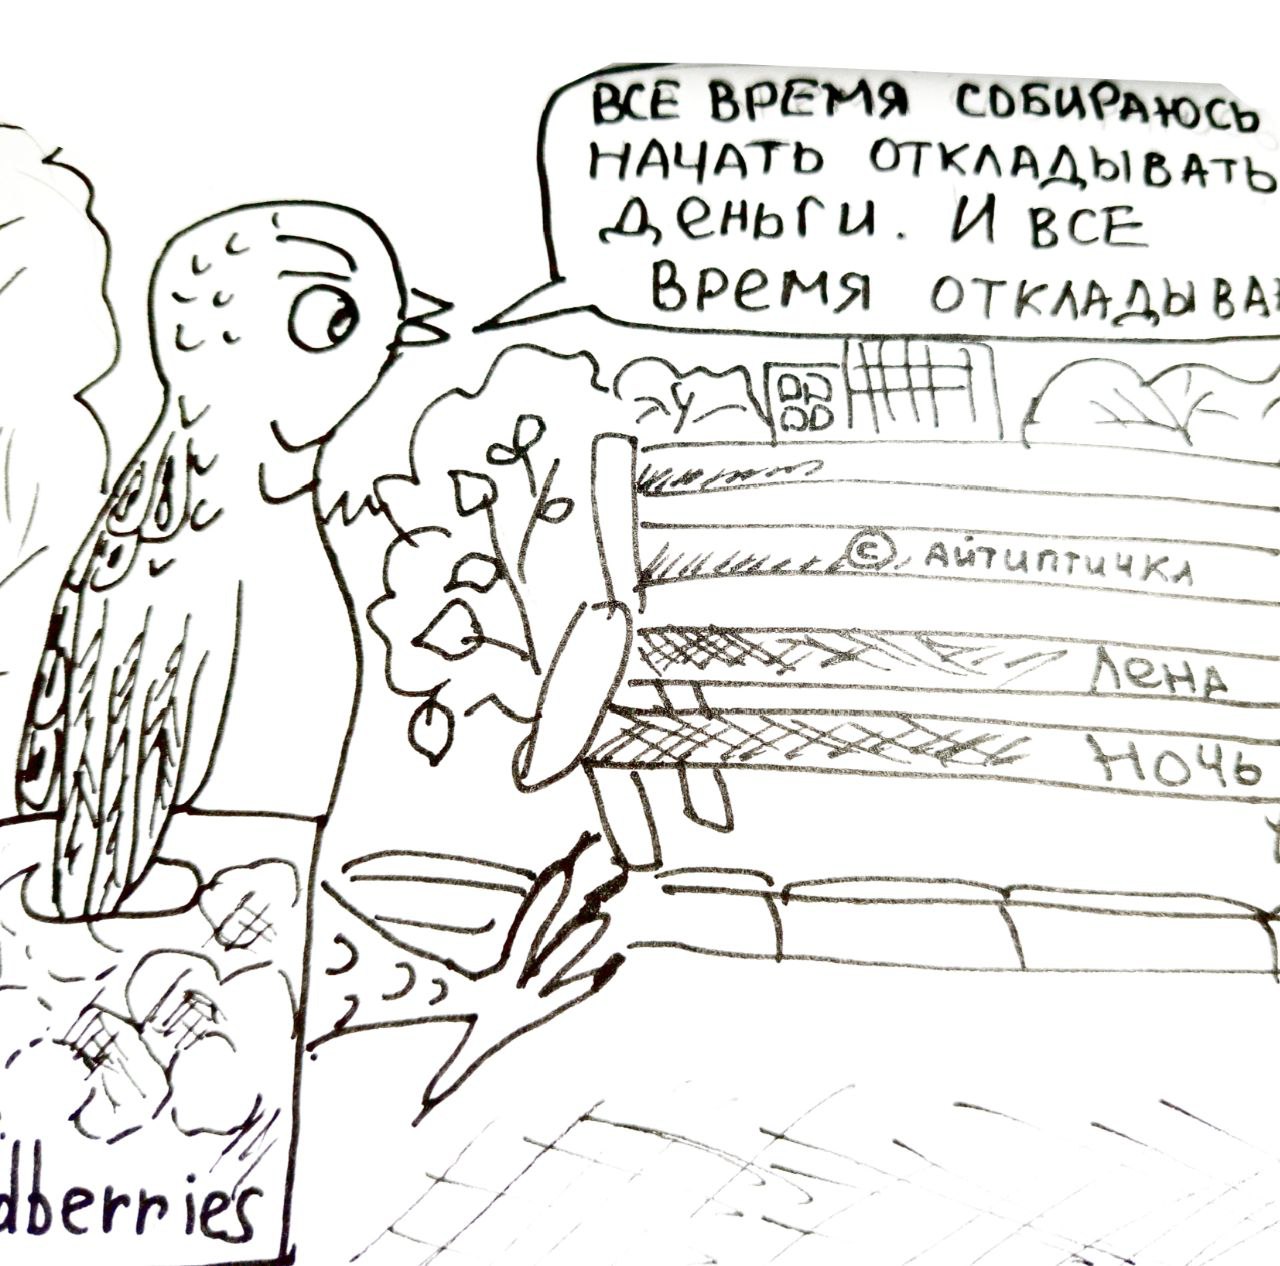 ВСЕ ВРЕМЯ СОБИРАЮСЬ
НАЧАТЬ ОТКЛАДЫВАТЬ
ДЕНЬГИ. И ВСЕ
ВРЕМЯ ОТКЛАДЫВА
© АЙТИПТИЧКА
ЛЕНА
НОЧЬ
dberries